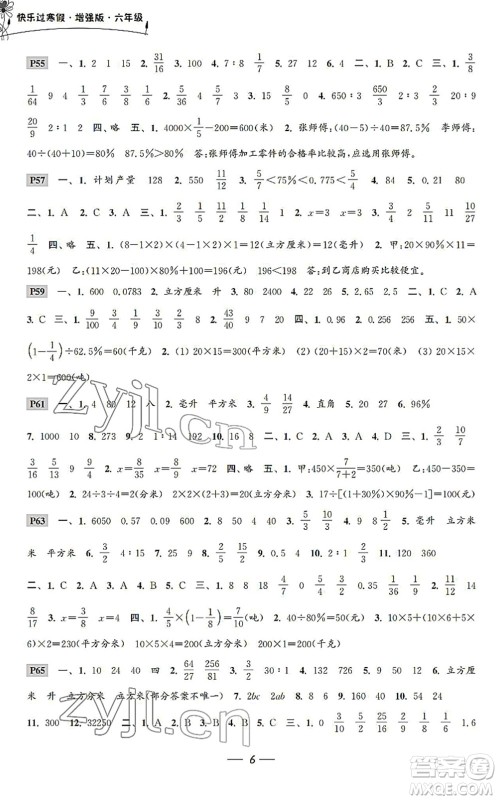 快乐过寒假·增强版·六年级
P55 一、1. 2 1 15 2. 31/16 3. 100 4. 7∶8 1/7 5. 27 12 6. 4 二、1. B 2. C 三、1. 3/8
1/64 9 4 1/4 3/8 7/8 5/6 4/3 7/4 3/4 2/15 2. 65 0.4 3. 650/3 2∶3 3/2 20∶9
20/9 2∶1 2 四、略 五、1. 4000×1/5-200=600(米) 2. 张师傅:(40-5)÷40=87.5% 李师傅:
40÷(40+10)=80% 87.5%>80% 答:张师傅加工零件的合格率比较高,应选派张师傅。
P57 一、1. 计划产量 128 2. 550 11/12 3. 5/7<75%<0.775<5/4 4. 84 5. 0.21 80
二、1. A 2. C 三、1. 1/2 1/3 1/2 1 3/8 3/4 5/8 11/8 2. x=3 x=3 3. 1/8 8/11 10/27
1/4 四、略 五、1. (8-1×2)×(4-1×2)×1=12(立方厘米)=12(毫升) 2. 甲:20×90%×11=
198(元) 乙:(11-1)×20×98%=196(元) 196<198 答:到乙商店购买比较便宜。
P59 一、1. 600 0.0783 2. 立方厘米 升 3. 80 2400 4. 22 26 5. 2.5 二、1. B 2. A
3. C 三、1. 9/100 3/4 1/3 8/9 60 6 2/5 8 2. 43/40 9 7/17 四、1. 0.4 2. 0.256 3. 256 五、1. 50×
(1-1/4)÷62.5%=60(千克) 2. (1) 20×15=300(平方米) (2) 20×15×2=600(平方米) (3) 20×15
×2×1=600(吨)
P61 一、1. 4 80 12 八 2. 毫升 平方米 3. 2/9 4/27 14/27 4. 直角 5. 20 27 6. 96%
7. 1000 10 8. 273 9. 2 1∶14 192 10. 16 8 二、1. C 2. A 3. C 4. B 三、1. 2/3 3/10
3/16 5/13 9/16 2. x=2/5 x=8/15 x=8/9 x=72 四、略 五、1. 甲:450×7/(7+2)=350(吨) 乙:450-350
=100(吨) 2. 24÷3÷4=2(分米) 2×2×(2+4+4)×2=80(立方分米) 3. 17÷[1-(1×90%-5%)]
P63 一、1. 6050 0.57 0.09 600 2. 2/5 5/2 3. 5/3 10/3 4. 32 24 40 5. 毫升 立方米
米 平方米 6. 3/2 4∶15 7. 25 21 8. 10 3 9. 2∶1 1/2 10. 3 30 11. 30 60 12. 25 75
二、1. C 2. A 3. D 4. B 三、1. 2/3 18 8 18 4/7 0 4/3 4/5 2. 0.01 1/36 1/9 1/8 11/9 3. 14
8/17 4. x=3/8 x=4 四、1. 4/5×(1-1/8)=7/10(吨) 2. 40÷80%=50(下) 3. 10×5+(10×6+6×
5)×2=230(平方分米) 10×5×4=200(立方分米) 200×1=200(千克)
P65 一、1. 10 24 40 2. 64/27 256/81 3. 30∶1 4. 132 5. 62 50 2 6. 立方厘米 立方分
米 升 立方米 立方分米(部分答案不唯一) 7. 2bc 2ab 8. 60 9. 略 10. 13 65 130
11. 300 12. 32250 二、1. A 2. D 3. B 4. C 三、1. 0 3/10 2/5 5/32 4/9 5/8 1/4 1/2 2. 1.6
6
zyjl.cn